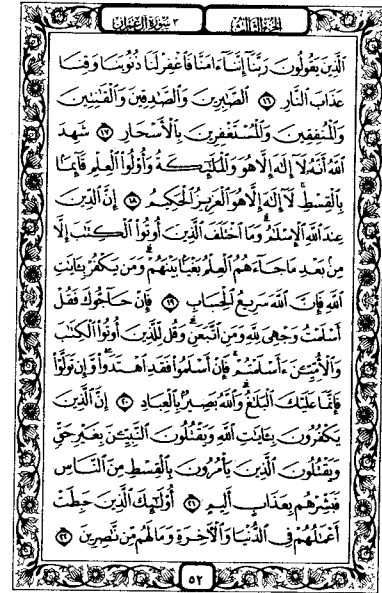 الجزء الثالث ٣ سورة آل عمران
الَّذِينَ يَقُولُونَ رَبَّنَآ إِنَّنَآ ءَامَنَّا فَٱغْفِرْ لَنَا ذُنُوبَنَا وَقِنَا
عَذَابَ ٱلنَّارِ ۝١٦ ٱلصَّٰبِرِينَ وَٱلصَّٰدِقِينَ وَٱلْقَٰنِتِينَ
وَٱلْمُنفِقِينَ وَٱلْمُسْتَغْفِرِينَ بِٱلْأَسْحَارِ ۝١٧ شَهِدَ
ٱللَّهُ أَنَّهُۥ لَآ إِلَٰهَ إِلَّا هُوَ وَٱلْمَلَٰٓئِكَةُ وَأُو۟لُوا۟ ٱلْعِلْمِ قَآئِمًۢا
بِٱلْقِسْطِ ۚ لَآ إِلَٰهَ إِلَّا هُوَ ٱلْعَزِيزُ ٱلْحَكِيمُ ۝١٨ إِنَّ ٱلدِّينَ
عِندَ ٱللَّهِ ٱلْإِسْلَٰمُ ۗ وَمَا ٱخْتَلَفَ ٱلَّذِينَ أُوتُوا۟ ٱلْكِتَٰبَ إِلَّا
مِنۢ بَعْدِ مَا جَآءَهُمُ ٱلْعِلْمُ بَغْيًۢا بَيْنَهُمْ ۗ وَمَن يَكْفُرْ بِـَٔايَٰتِ
ٱللَّهِ فَإِنَّ ٱللَّهَ سَرِيعُ ٱلْحِسَابِ ۝١٩ فَإِنْ حَآجُّوكَ فَقُلْ
أَسْلَمْتُ وَجْهِىَ لِلَّهِ وَمَنِ ٱتَّبَعَنِ ۗ وَقُل لِّلَّذِينَ أُوتُوا۟ ٱلْكِتَٰبَ
وَٱلْأُمِّيِّـۧنَ ءَأَسْلَمْتُمْ ۚ فَإِنْ أَسْلَمُوا۟ فَقَدِ ٱهْتَدَوا۟ ۖ وَّإِن تَوَلَّوْا۟
فَإِنَّمَا عَلَيْكَ ٱلْبَلَٰغُ ۗ وَٱللَّهُ بَصِيرٌۢ بِٱلْعِبَادِ ۝٢٠ إِنَّ ٱلَّذِينَ
يَكْفُرُونَ بِـَٔايَٰتِ ٱللَّهِ وَيَقْتُلُونَ ٱلنَّبِيِّـۧنَ بِغَيْرِ حَقٍّ
وَيَقْتُلُونَ ٱلَّذِينَ يَأْمُرُونَ بِٱلْقِسْطِ مِنَ ٱلنَّاسِ
فَبَشِّرْهُم بِعَذَابٍ أَلِيمٍ ۝٢١ أُو۟لَٰٓئِكَ ٱلَّذِينَ حَبِطَتْ
أَعْمَٰلُهُمْ فِى ٱلدُّنْيَا وَٱلْءَاخِرَةِ وَمَا لَهُم مِّن نَّٰصِرِينَ ۝٢٢
٥٢